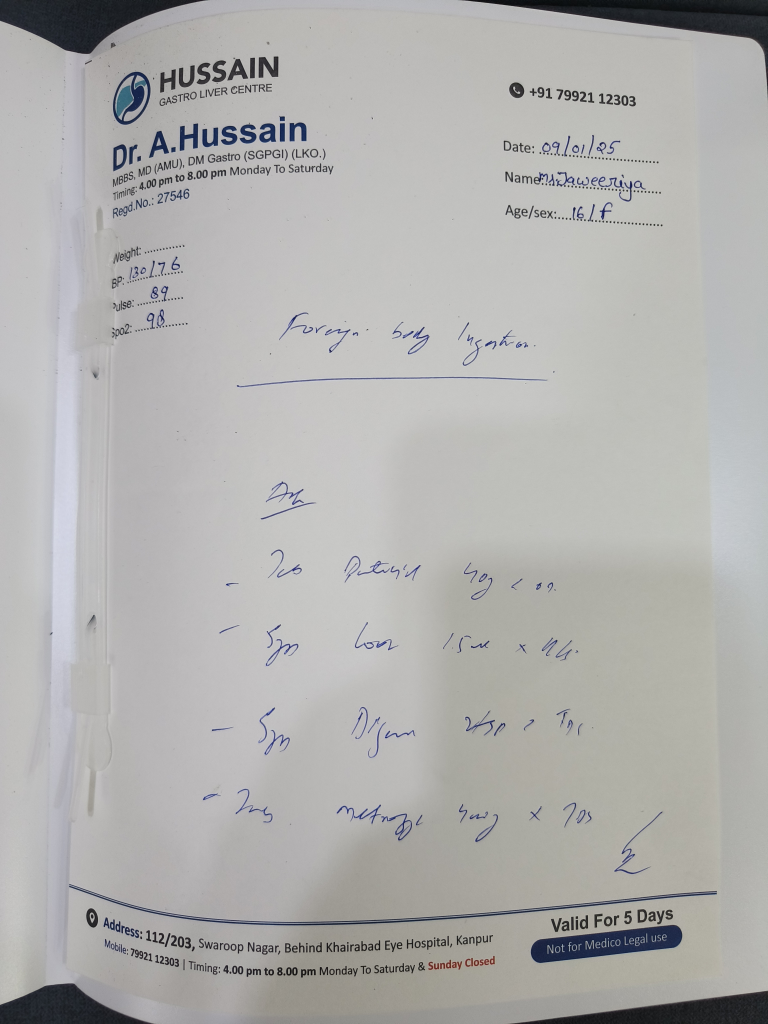 HUSSAIN
GASTRO LIVER CENTRE
+91 79921 12303
Dr. A.Hussain
MBBS, MD (AMU), DM Gastro (SGPGI) (LKO.)
Timing: 4.00 pm to 8.00 pm Monday To Saturday
Regd.No.: 27546
Date: 09/01/25
Name: Ms Jaweeriya
Age/sex: 16/f
Weight:
BP: 130/76
Pulse: 89
Spo2: 98
Foreign body Ingestion.
- Tab 40g
- Syp 1.5 x
- Syp
- Tab x TDS
Address: 112/203, Swaroop Nagar, Behind Khairabad Eye Hospital, Kanpur
Mobile: 79921 12303 | Timing: 4.00 pm to 8.00 pm Monday To Saturday & Sunday Closed
Valid For 5 Days
Not for Medico Legal use